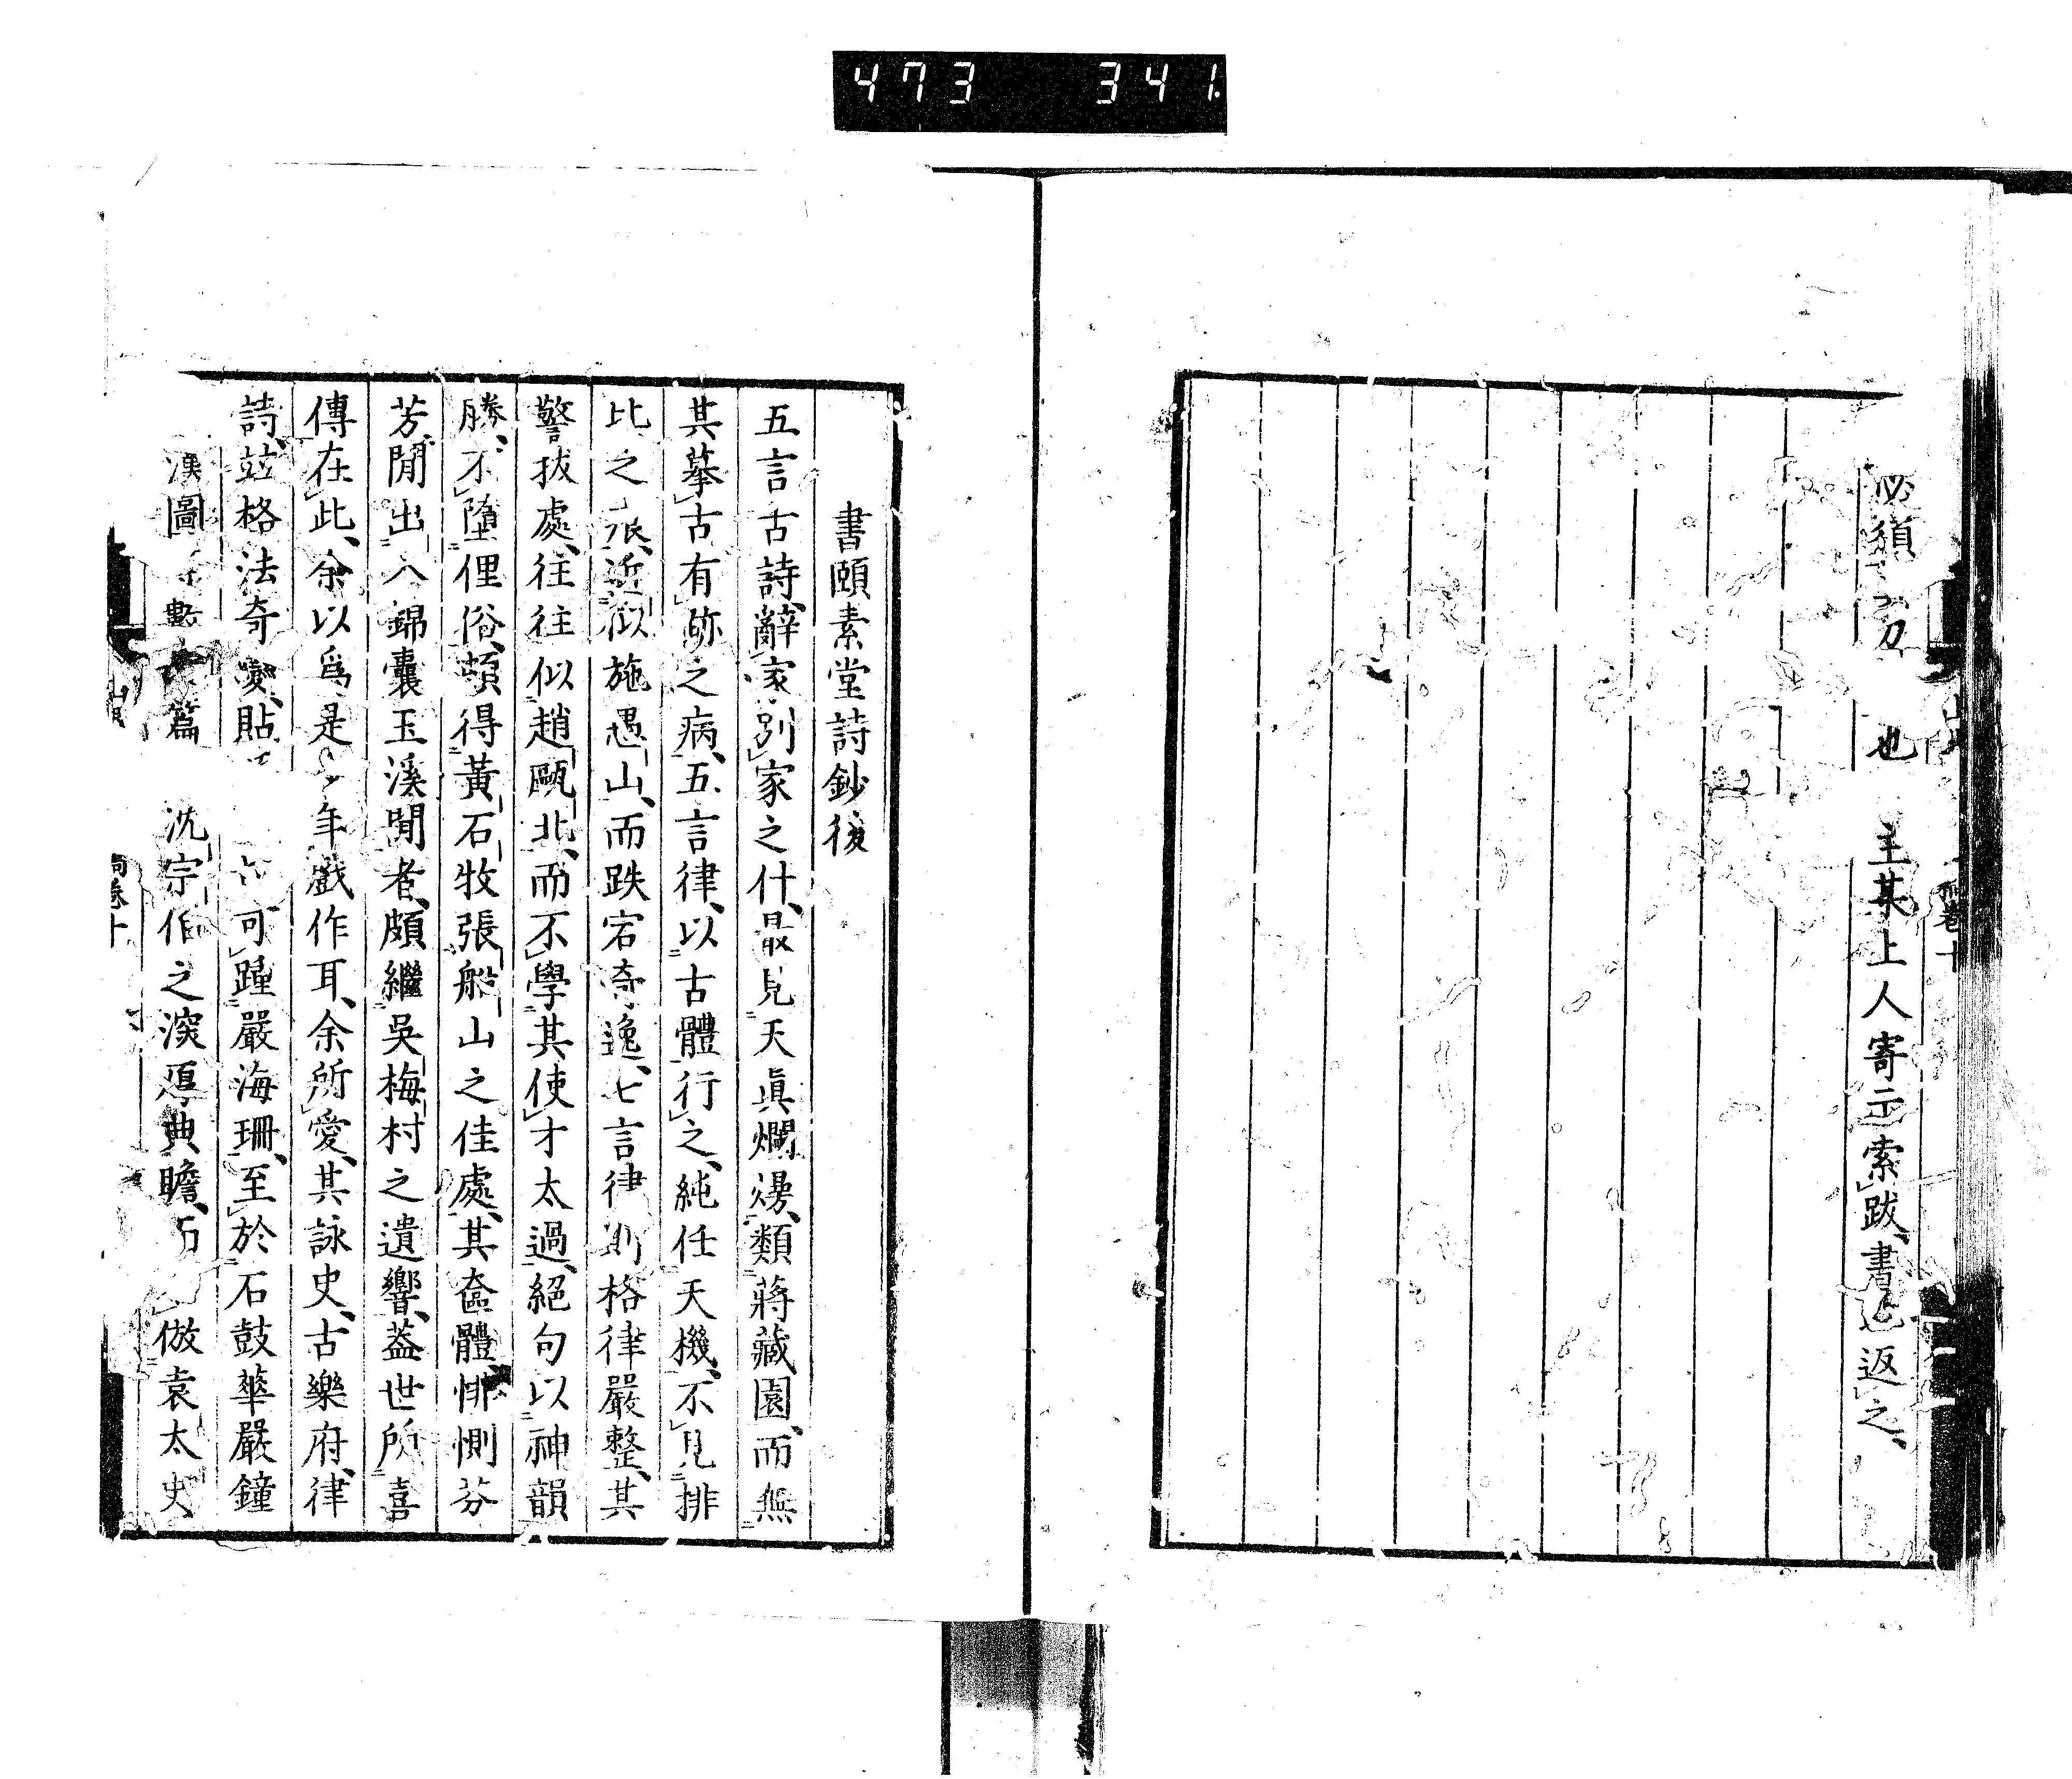 473 341
必須 刀 也 主某上人寄示索跋書 返之
卷十
書頤素堂詩鈔後
五言古詩辭家別家之什最見天眞爛熳類蔣藏園而無
其摹古有跡之病五言律以古體行之純任天機不見排
比之 派近似施愚山而跌宕奇逸七言律則格律嚴整其
警拔處往往似趙甌北而不學其使才太過絕句以神韻
勝不墮俚俗頗得黃石牧張船山之佳處其奩體悱惻芬
芳間出入錦囊玉溪間者頗繼吳梅村之遺響葢世所喜
傳在此余以爲是少年戲作耳余所愛其詠史古樂府律
詩竝格法奇變貼 可踵嚴海珊至於石鼓華嚴鐘
漢圖 數 篇 沈宗伯之深厚典贍 倣袁太史
卷十